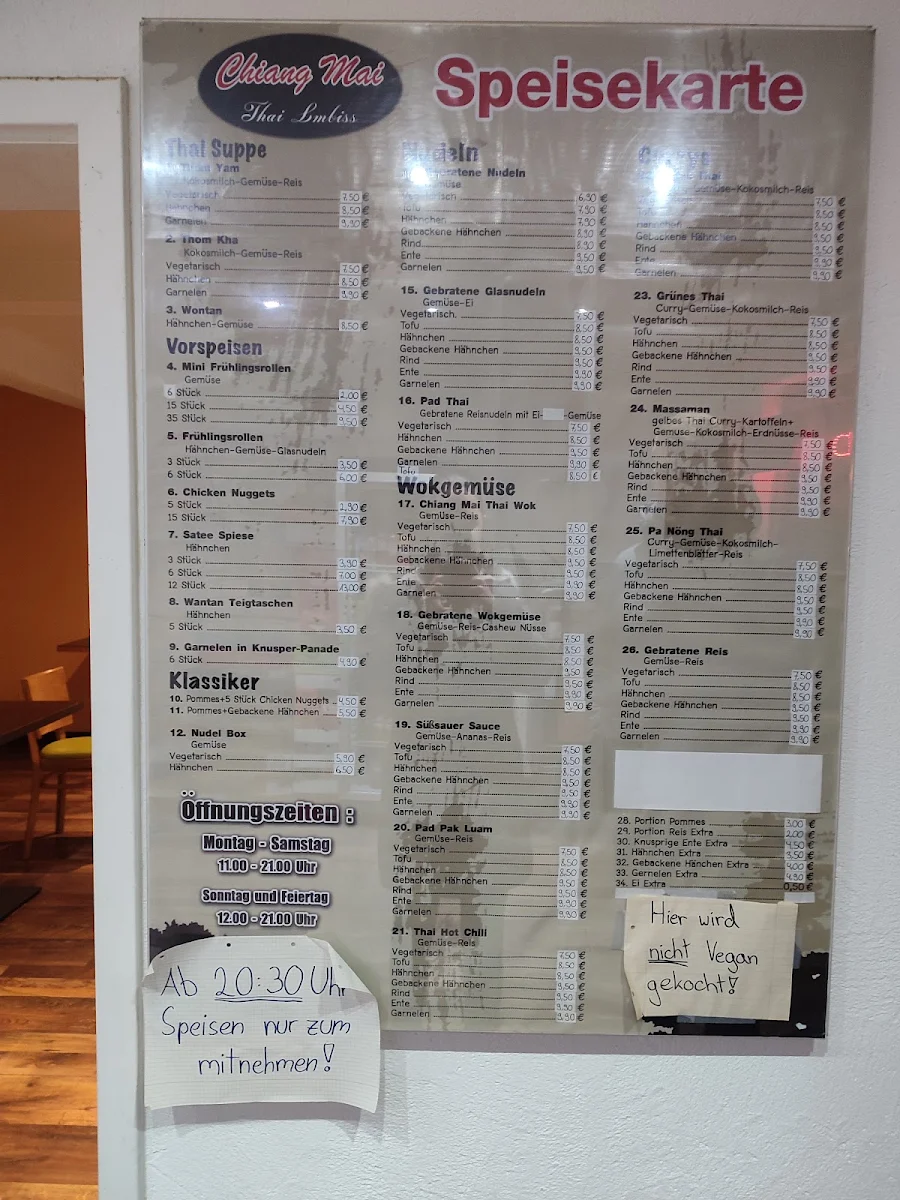 Chiang Mai
Thai Imbiss
Speisekarte
Thai Suppe
Yam
Kokosmilch-Gemüse-Reis
Vegetarisch 7,50 €
Hähnchen 8,50 €
Garnelen 9,90 €
2. Thom Kha
Kokosmilch-Gemüse-Reis
Vegetarisch 7,50 €
Hähnchen 8,50 €
Garnelen 9,90 €
3. Wontan
Hähnchen-Gemüse 8,50 €
Vorspeisen
4. Mini Frühlingsrollen
Gemüse
6 Stück 2,00 €
15 Stück 4,50 €
35 Stück 9,50 €
5. Frühlingsrollen
Hähnchen-Gemüse-Glasnudeln
3 Stück 3,50 €
6 Stück 6,00 €
6. Chicken Nuggets
5 Stück 2,90 €
15 Stück 7,90 €
7. Satee Spiese
Hähnchen
3 Stück 3,90 €
6 Stück 7,00 €
12 Stück 13,00 €
8. Wantan Teigtaschen
Hähnchen
5 Stück 3,50 €
9. Garnelen in Knusper-Panade
6 Stück 4,90 €
Klassiker
10. Pommes+5 Stück Chicken Nuggets 4,50 €
11. Pommes+Gebackene Hähnchen 5,50 €
12. Nudel Box
Gemüse
Vegetarisch 5,90 €
Hähnchen 6,50 €
Öffnungszeiten :
Montag - Samstag
11.00 - 21.00 Uhr
Sonntag und Feiertag
12.00 - 21.00 Uhr
Ab 20:30 Uhr
Speisen nur zum
mitnehmen!
Nudeln
Nudeln
6,90 €
Tofu 7,90 €
Hähnchen 7,90 €
Gebackene Hähnchen 8,90 €
Rind 8,90 €
Ente 9,50 €
Garnelen 9,50 €
15. Gebratene Glasnudeln
Gemüse-Ei
Vegetarisch. 7,50 €
Tofu 8,50 €
Hähnchen 8,50 €
Gebackene Hähnchen 9,50 €
Rind 9,50 €
Ente 9,90 €
Garnelen 9,90 €
16. Pad Thai
Gebratene Reisnudeln mit Ei- -Gemüse
Vegetarisch 7,50 €
Hähnchen 8,50 €
Gebackene Hähnchen 9,50 €
Garnelen 9,90 €
Tofu 8,50 €
Wokgemüse
17. Chiang Mai Thai Wok
Gemüse-Reis
Vegetarisch 7,50 €
Tofu 8,50 €
Hähnchen 8,50 €
Gebackene Hähnchen 9,50 €
Rind 9,50 €
Ente 9,90 €
Garnelen 9,90 €
18. Gebratene Wokgemüse
Gemüse-Reis-Cashew Nüsse
Vegetarisch 7,50 €
Tofu 8,50 €
Hähnchen 8,50 €
Gebackene Hähnchen 9,50 €
Rind 9,50 €
Ente 9,90 €
Garnelen 9,90 €
19. Süßsauer Sauce
Gemüse-Ananas-Reis
Vegetarisch 7,50 €
Tofu 8,50 €
Hähnchen 8,50 €
Gebackene Hähnchen 9,50 €
Rind 9,50 €
Ente 9,90 €
Garnelen 9,90 €
20. Pad Pak Luam
Gemüse-Reis
Vegetarisch 7,50 €
Tofu 8,50 €
Hähnchen 8,50 €
Gebackene Hähnchen 9,50 €
Rind 9,50 €
Ente 9,90 €
Garnelen 9,90 €
21. Thai Hot Chili
Gemüse-Reis
Vegetarisch 7,50 €
Tofu 8,50 €
Hähnchen 8,50 €
Gebackene Hähnchen 9,50 €
Rind 9,50 €
Ente 9,90 €
Garnelen 9,90 €
Thai
-Kokosmilch-Reis
7,50 €
8,50 €
Hähnchen 8,50 €
Gebackene Hähnchen 9,50 €
Rind 9,50 €
Ente 9,90 €
Garnelen 9,90 €
23. Grünes Thai
Curry-Gemüse-Kokosmilch-Reis
Vegetarisch 7,50 €
Tofu 8,50 €
Hähnchen 8,50 €
Gebackene Hähnchen 9,50 €
Rind 9,50 €
Ente 9,90 €
Garnelen 9,90 €
24. Massaman
gelbes Thai Curry-Kartoffeln+
Gemüse-Kokosmilch-Erdnüsse-Reis
Vegetarisch 7,50 €
Tofu 8,50 €
Hähnchen 8,50 €
Gebackene Hähnchen 9,50 €
Rind 9,50 €
Ente 9,90 €
Garnelen 9,90 €
25. Pa Nöng Thai
Curry-Gemüse-Kokosmilch-
Limettenblätter-Reis
Vegetarisch 7,50 €
Tofu 8,50 €
Hähnchen 8,50 €
Gebackene Hähnchen 9,50 €
Rind 9,50 €
Ente 9,90 €
Garnelen 9,90 €
26. Gebratene Reis
Gemüse-Reis
Vegetarisch 7,50 €
Tofu 8,50 €
Hähnchen 8,50 €
Gebackene Hähnchen 9,50 €
Rind 9,50 €
Ente 9,90 €
Garnelen 9,90 €
28. Portion Pommes 3,00 €
29. Portion Reis Extra 2,00 €
30. Knusprige Ente Extra 4,50 €
31. Hähnchen Extra 3,50 €
32. Gebackene Hänchen Extra 4,00 €
33. Gernelen Extra 4,90 €
34. Ei Extra 0,50 €
Hier wird
nicht Vegan
gekocht!